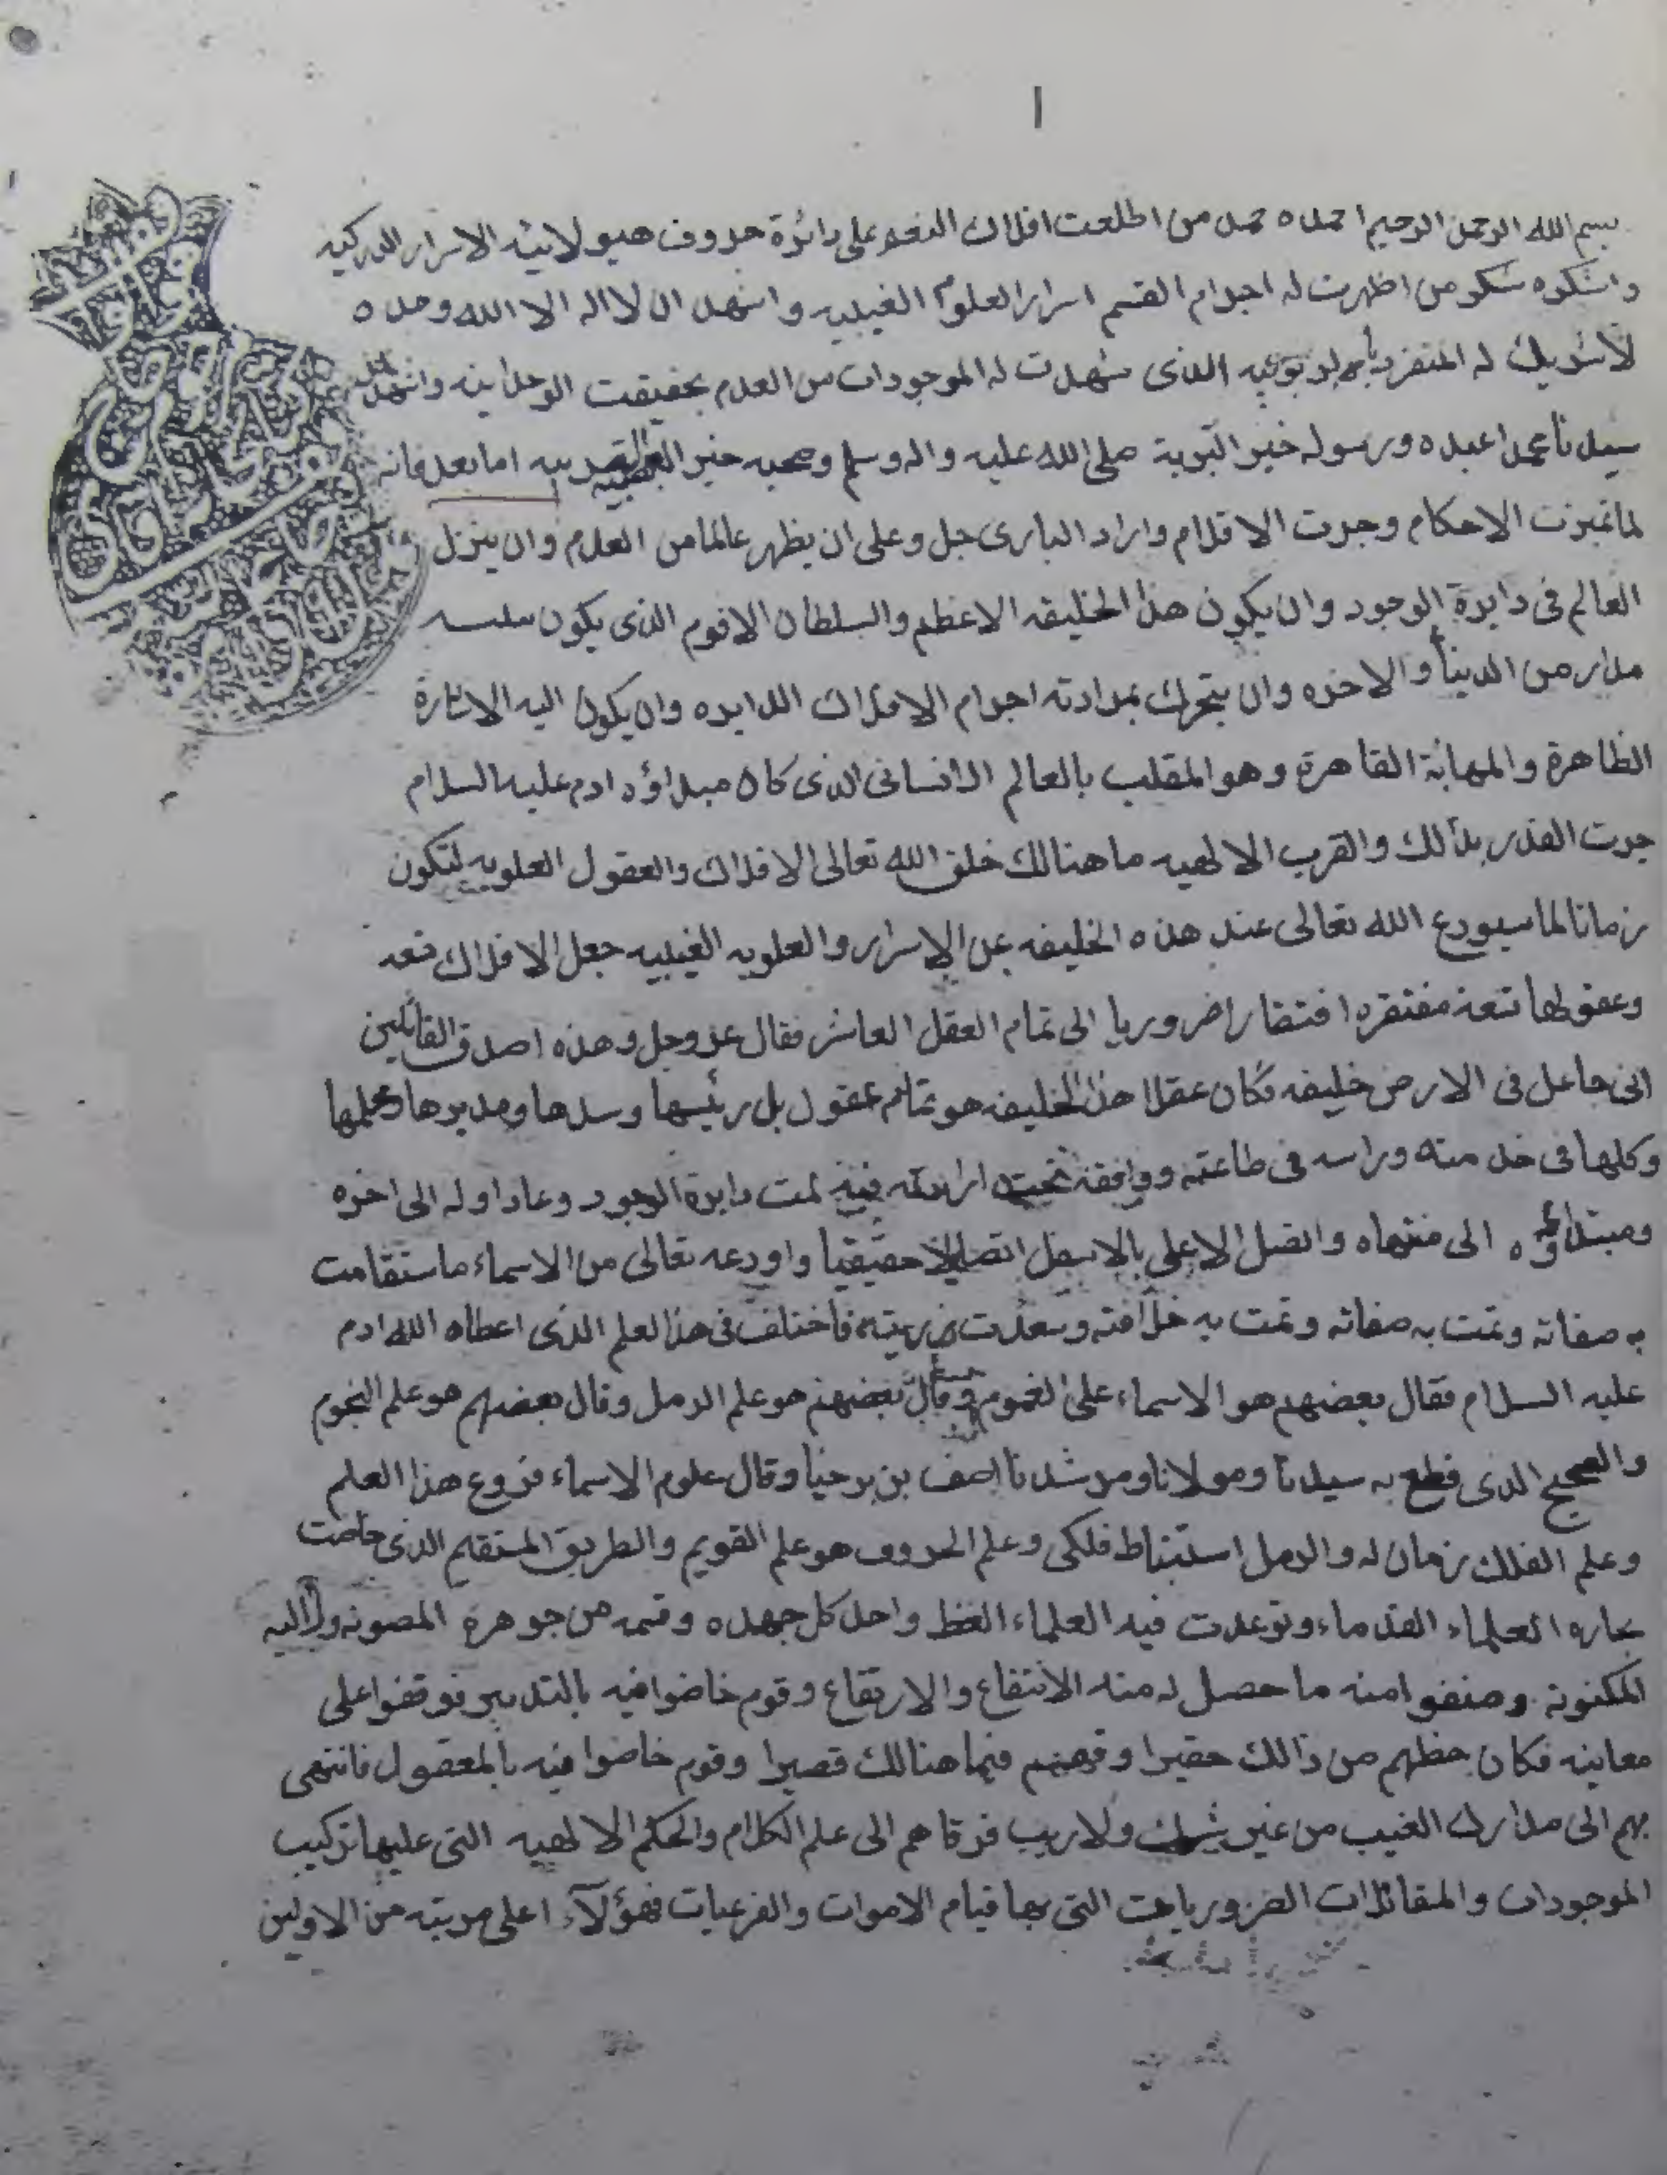 ١
بسم الله الرحمن الرحيم احمده حمد من اطلعت افلاك على دائرة حروف هيولانيته الاسرار
واشكره شكر من اظهرت له اجرام القسم اسرار العلوم الغيبيه واشهد ان لا اله الا الله وحده
لا شريك له المنفرد الذى شهدت له الموجودات من العدم بحقيقت الوحدانيه واشهد
سيدنا محمدا عبده ورسوله خير البرية صلى الله عليه واله وسلم وصحبه خير اما بعد فانه
لما تميزت الاحكام وجرت الاقلام واراد البارى جل وعلى ان يظهر عالما من العدم وان ينزل
العالم فى دايرة الوجود وان يكون هذا الخليفه الاعظم والسلطان الاقوم الذى يكون
مدار من الدنيا والاخره وان يتحرك بمرادته اجرام الافلاك الدايره وان يكون اليه الاشارة
الظاهرة والمهابة القاهرة وهو المقلب بالعالم الانسانى الذى كان مبداؤه ادم عليه السلام
جرت القدر بذالك والقرب الالهيه ما هنالك خلق الله تعالى الافلاك والعقول العلويه لتكون
زمانا لما سيودع الله تعالى عند هذه الخليفه من الاسرار والعلويه الغيبيه جعل الافلاك تسعه
وعقولها تسعة مفتقره افتقارا ضروريا الى تمام العقل العاشر فقال عز وجل وهذه اصدق القائلين
انى جاعل فى الارض خليفه فكان عقلا هذا الخليفه هو تمام عقول بل رئيسها وسدها ومدبرها
وكلها فى خدمته وراسه فى طاعته ووافقة تحت ارادته تمت دايرة الوجود وعاد اوله الى اخره
ومبتداؤه الى منتهاه واتصل الاعلى بالاسفل اتصالا حقيقيا واودعه تعالى من الاسماء ما ستقامت
به صفاته وتمت به صفاته وتمت به خلافته وسعدت ذريته فاختلف فى هذا العلم الذى اعطاه الله ادم
عليه السلام فقال بعضهم هو الاسماء على العموم وقال بعضهم هو علم الرمل وقال بعضهم هو علم النجوم
والصحيح الذى قطع به سيدنا ومولانا ومرشدنا اصف بن برخيا وقال علوم الاسماء فروع هذا العلم
وعلم الفلك زمان له والرمل استنباط فلكى وعلم الحروف هو علم القويم والطريق المستقيم الذى خاضت
بحاره العلماء القدماء وتوعدت فيه العلماء واحد كل جهده وقسمه من جوهرة المصونه
المكنونة وصنفوا منه ما حصل له منه الانتفاع والارتفاع وقوم خاضوا فيه بالتدبير فوقفوا على
معاينه فكان حظهم من ذالك حقيرا وفهمهم فيما هنالك قصيرا وقوم خاضوا فيه بالمعقول فانتهى
بهم الى مدارك الغيب من غير شك ولا ريب فرقاهم الى علم الكلام والحكم الالهيه التى عليها تركيب
الموجودات والمقالات الضروريات التى بها قيام الاموات والفرعيات فهؤلاء اعلى مرتبة من الاولين